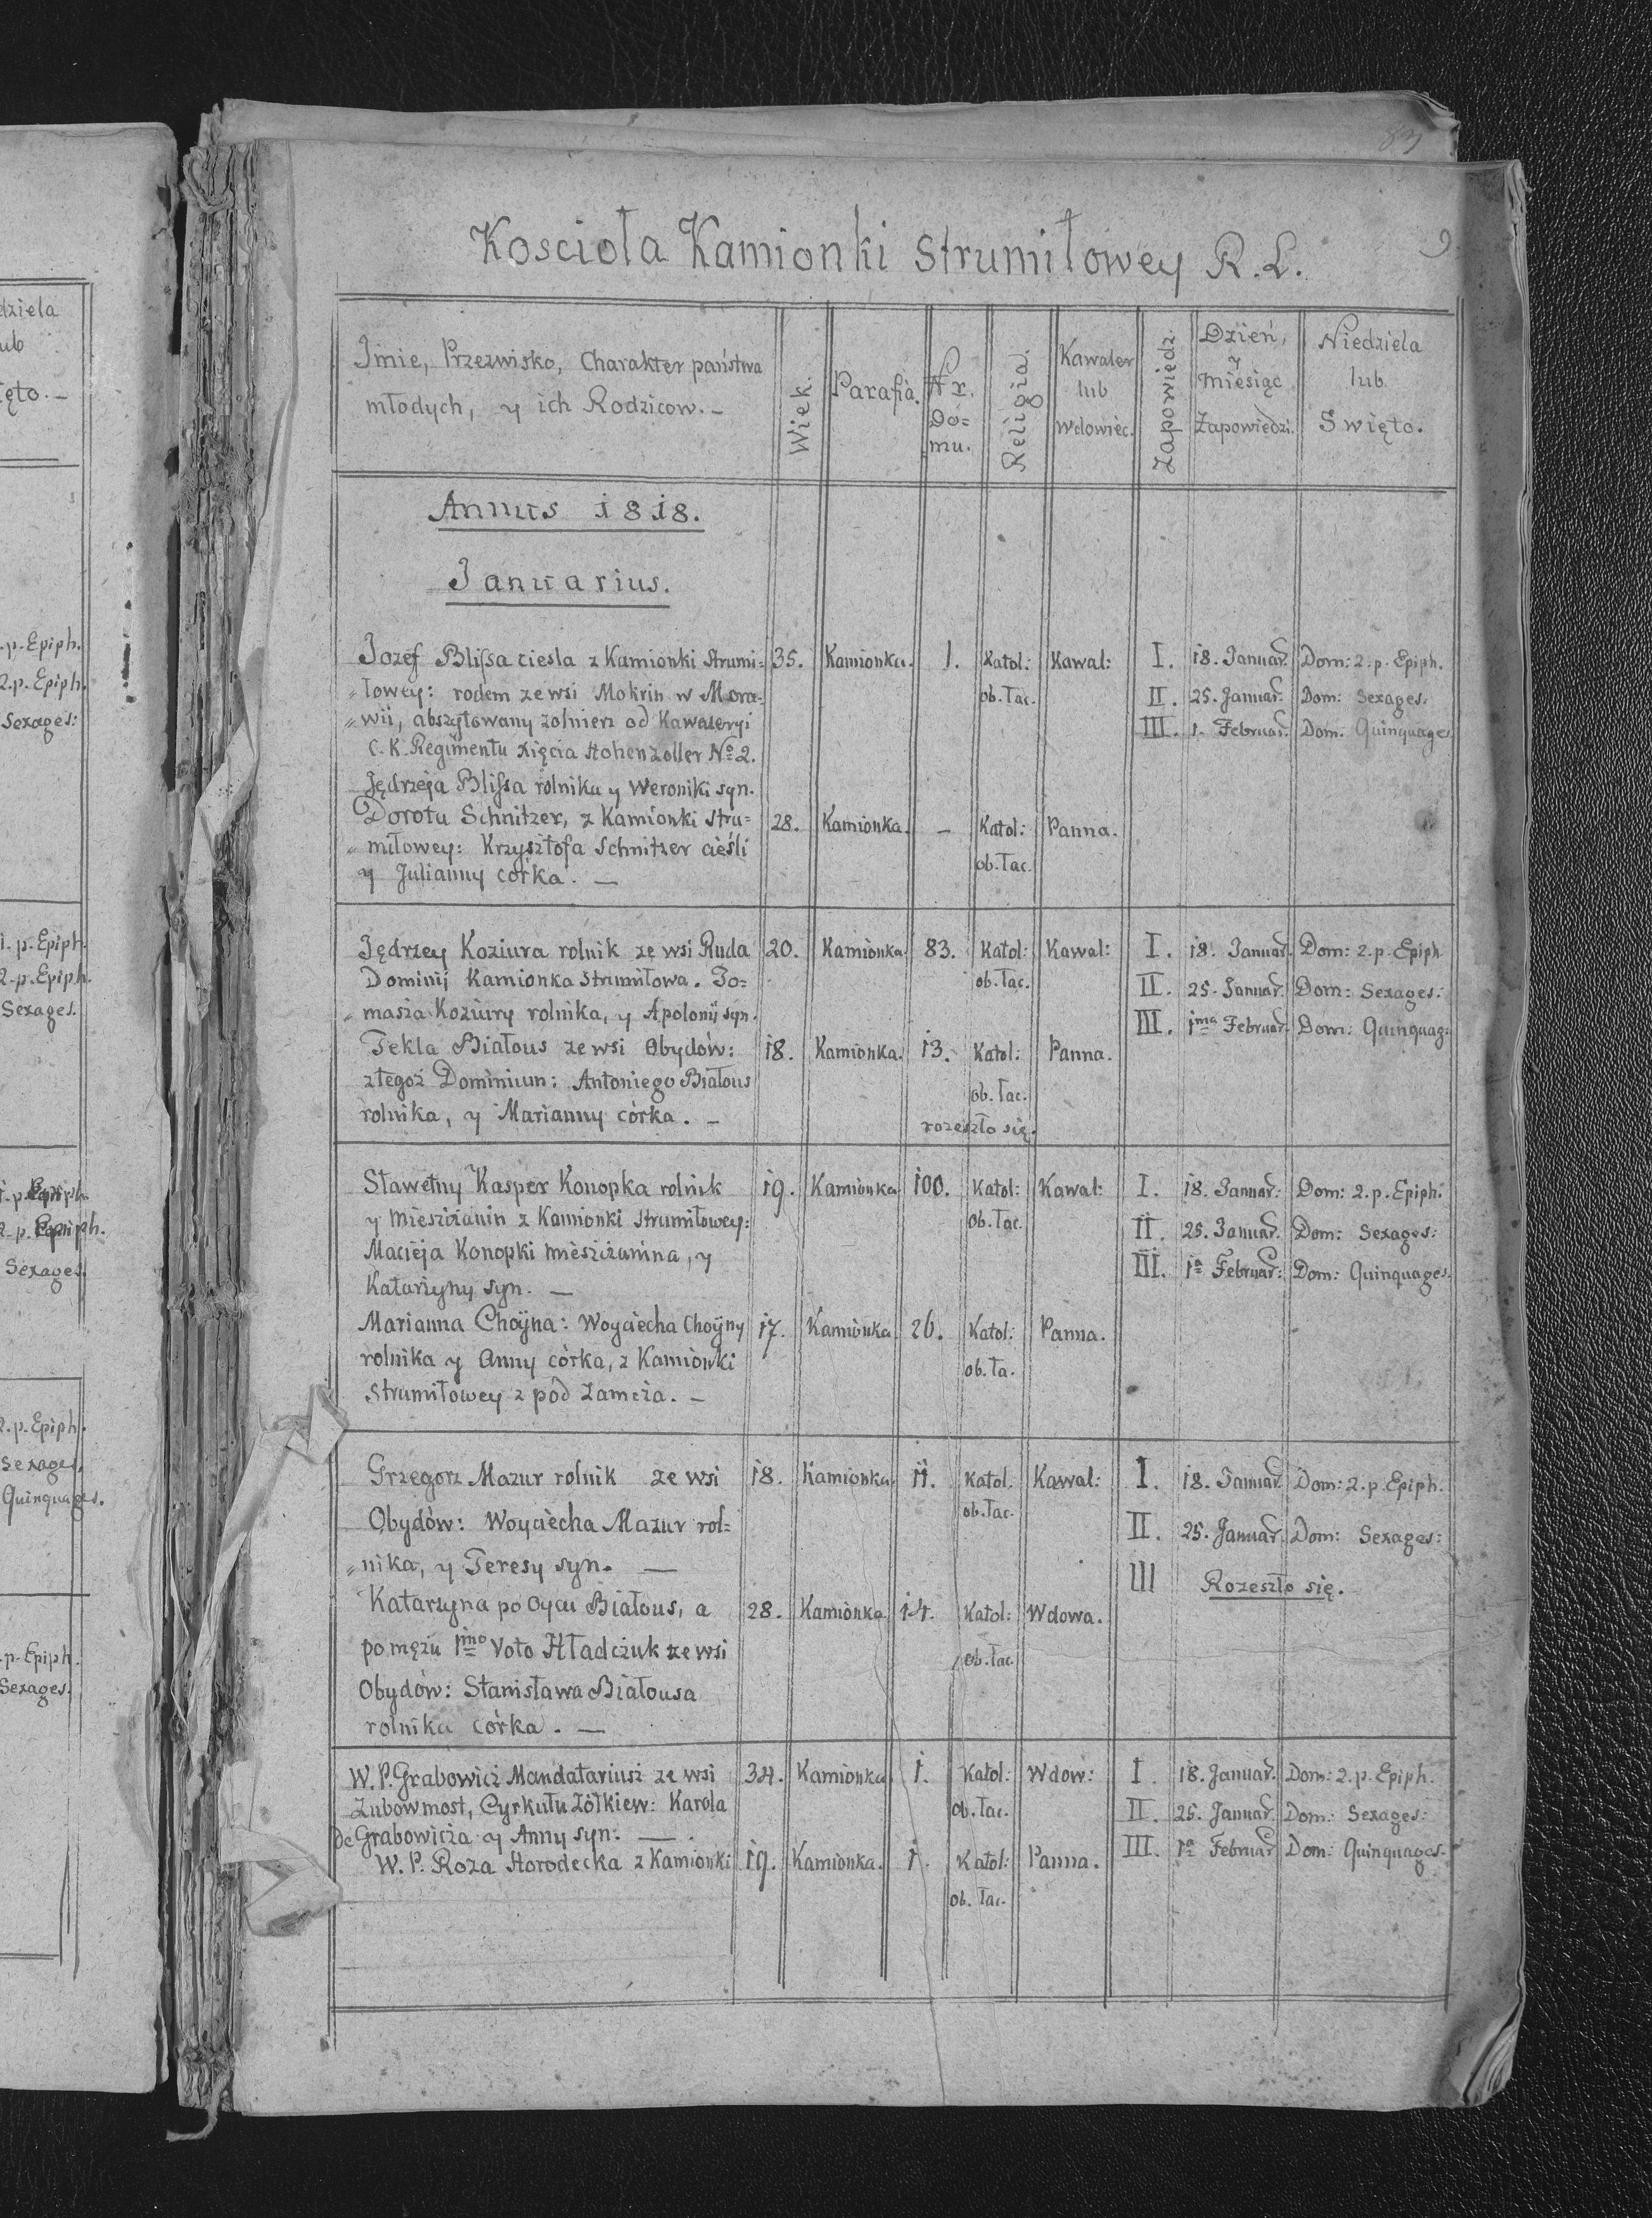 83
9
Kosciola Kamionki Strumiłowey R. L.
Jmie, Przezwisko, Charakter państwa
młodych, y ich Rodzicow. –
Wiek.
Parafia.
Nr. Do= mu.
Religia.
Kawaler lub Wdowiec.
Zapowiedz.
Dzień, y miesiąc Zapowiedzi.
Niedziela lub Swięto.
Annus 1818.
Januarius.
Jozef Blissa ciesla z Kamionki Strumi= 35. Kamionka. 1. Katol: Kawal: I. 18. Januar. Dom: 2. p. Epiph.
"łowey: rodem ze wsi Mokrin w Mora= ob. łac. II. 25. Januar. Dom: Sexages:
"wii, abszytowany żołnierz od Kawaleryi III. 1. Februar. Dom. Quinquages
C. K. Regimentu Xięcia Hohenzoller No 2.
Jędrzeja Blissa rolnika y Weroniki syn.
Dorota Schnitzer, z Kamionki Stru= 28. Kamionka. – Katol: Panna.
"miłowey: Krzysztofa Schnitzer cieśli ob. łac.
y Julianny córka. —
Jędrzey Koziura rolnik ze wsi Ruda 20. Kamionka 83. Katol: Kawal: I. 18. Januar. Dom: 2. p. Epiph.
Dominij Kamionka Strumiłowa. To= ob. łac. II. 25. Januar. Dom: Sexages:
"masza Koziury rolnika, y Apolonij syn. III. 1ma Februar. Dom: Quinquag:
Tekla Białous ze wsi Obydów: 18. Kamionka. 13. Katol: Panna.
z tegoż Dominium: Antoniego Białous ob. łac.
rolnika, y Marianny córka. – rozeszło się.
Sławetny Kasper Konopka rolnik 19. Kamionka 100. Katol: Kawal: I. 18. Januar: Dom: 2. p. Epiph:
y Mieszczanin z Kamionki Strumiłowey: ob. łac. II. 25. Januar. Dom: Sexages:
Macieja Konopki mieszczanina, y III. 1a Februar: Dom: Quinquages.
Katarzyny syn. —
Marianna Choyna: Woyciecha Choyny 17. Kamionka 26. Katol: Panna.
rolnika y Anny córka, z Kamionki ob. ła.
Strumiłowey z pod Zamcza. –
Grzegorz Mazur rolnik ze wsi 18. Kamionka. 11. Katol. Kawal: I. 18. Januar. Dom: 2. p. Epiph.
Obydów: Woyciecha Mazur rol= ob. łac. II. 25. Januar. Dom: Sexages:
"nika, y Teresy syn. — III Rozeszło się.
Katarzyna po Oycu Białous, a 28. Kamionka 14. Katol: Wdowa.
po mężu 1mo Voto Hładczuk ze wsi ob. łac.
Obydów: Stanisława Białousa
rolnika córka. —
W. P. Grabowicz Mandatariusz ze wsi 34. Kamionka 1. Katol: Wdow: I. 18. Januar. Dom: 2. p. Epiph.
Zubowmost, Cyrkułu Żółkiew: Karola ob. łac. II. 25. Januar. Dom: Sexages:
de Grabowicza y Anny syn: — III. 1a Februar Dom: Quinquages.
W. P. Roza Horodecka z Kamionki 19. Kamionka. 1. Katol: Panna.
ob. łac.
dziela
ub
ięto. –
.-p. Epiph.
2. p. Epiph.
Sexages:
1. p. Epiph.
2. p. Epiph.
Sexages.
Sexages.
2. p. Epiph.
Sexages.
Quinquages.
.p. Epiph.
Sexages.